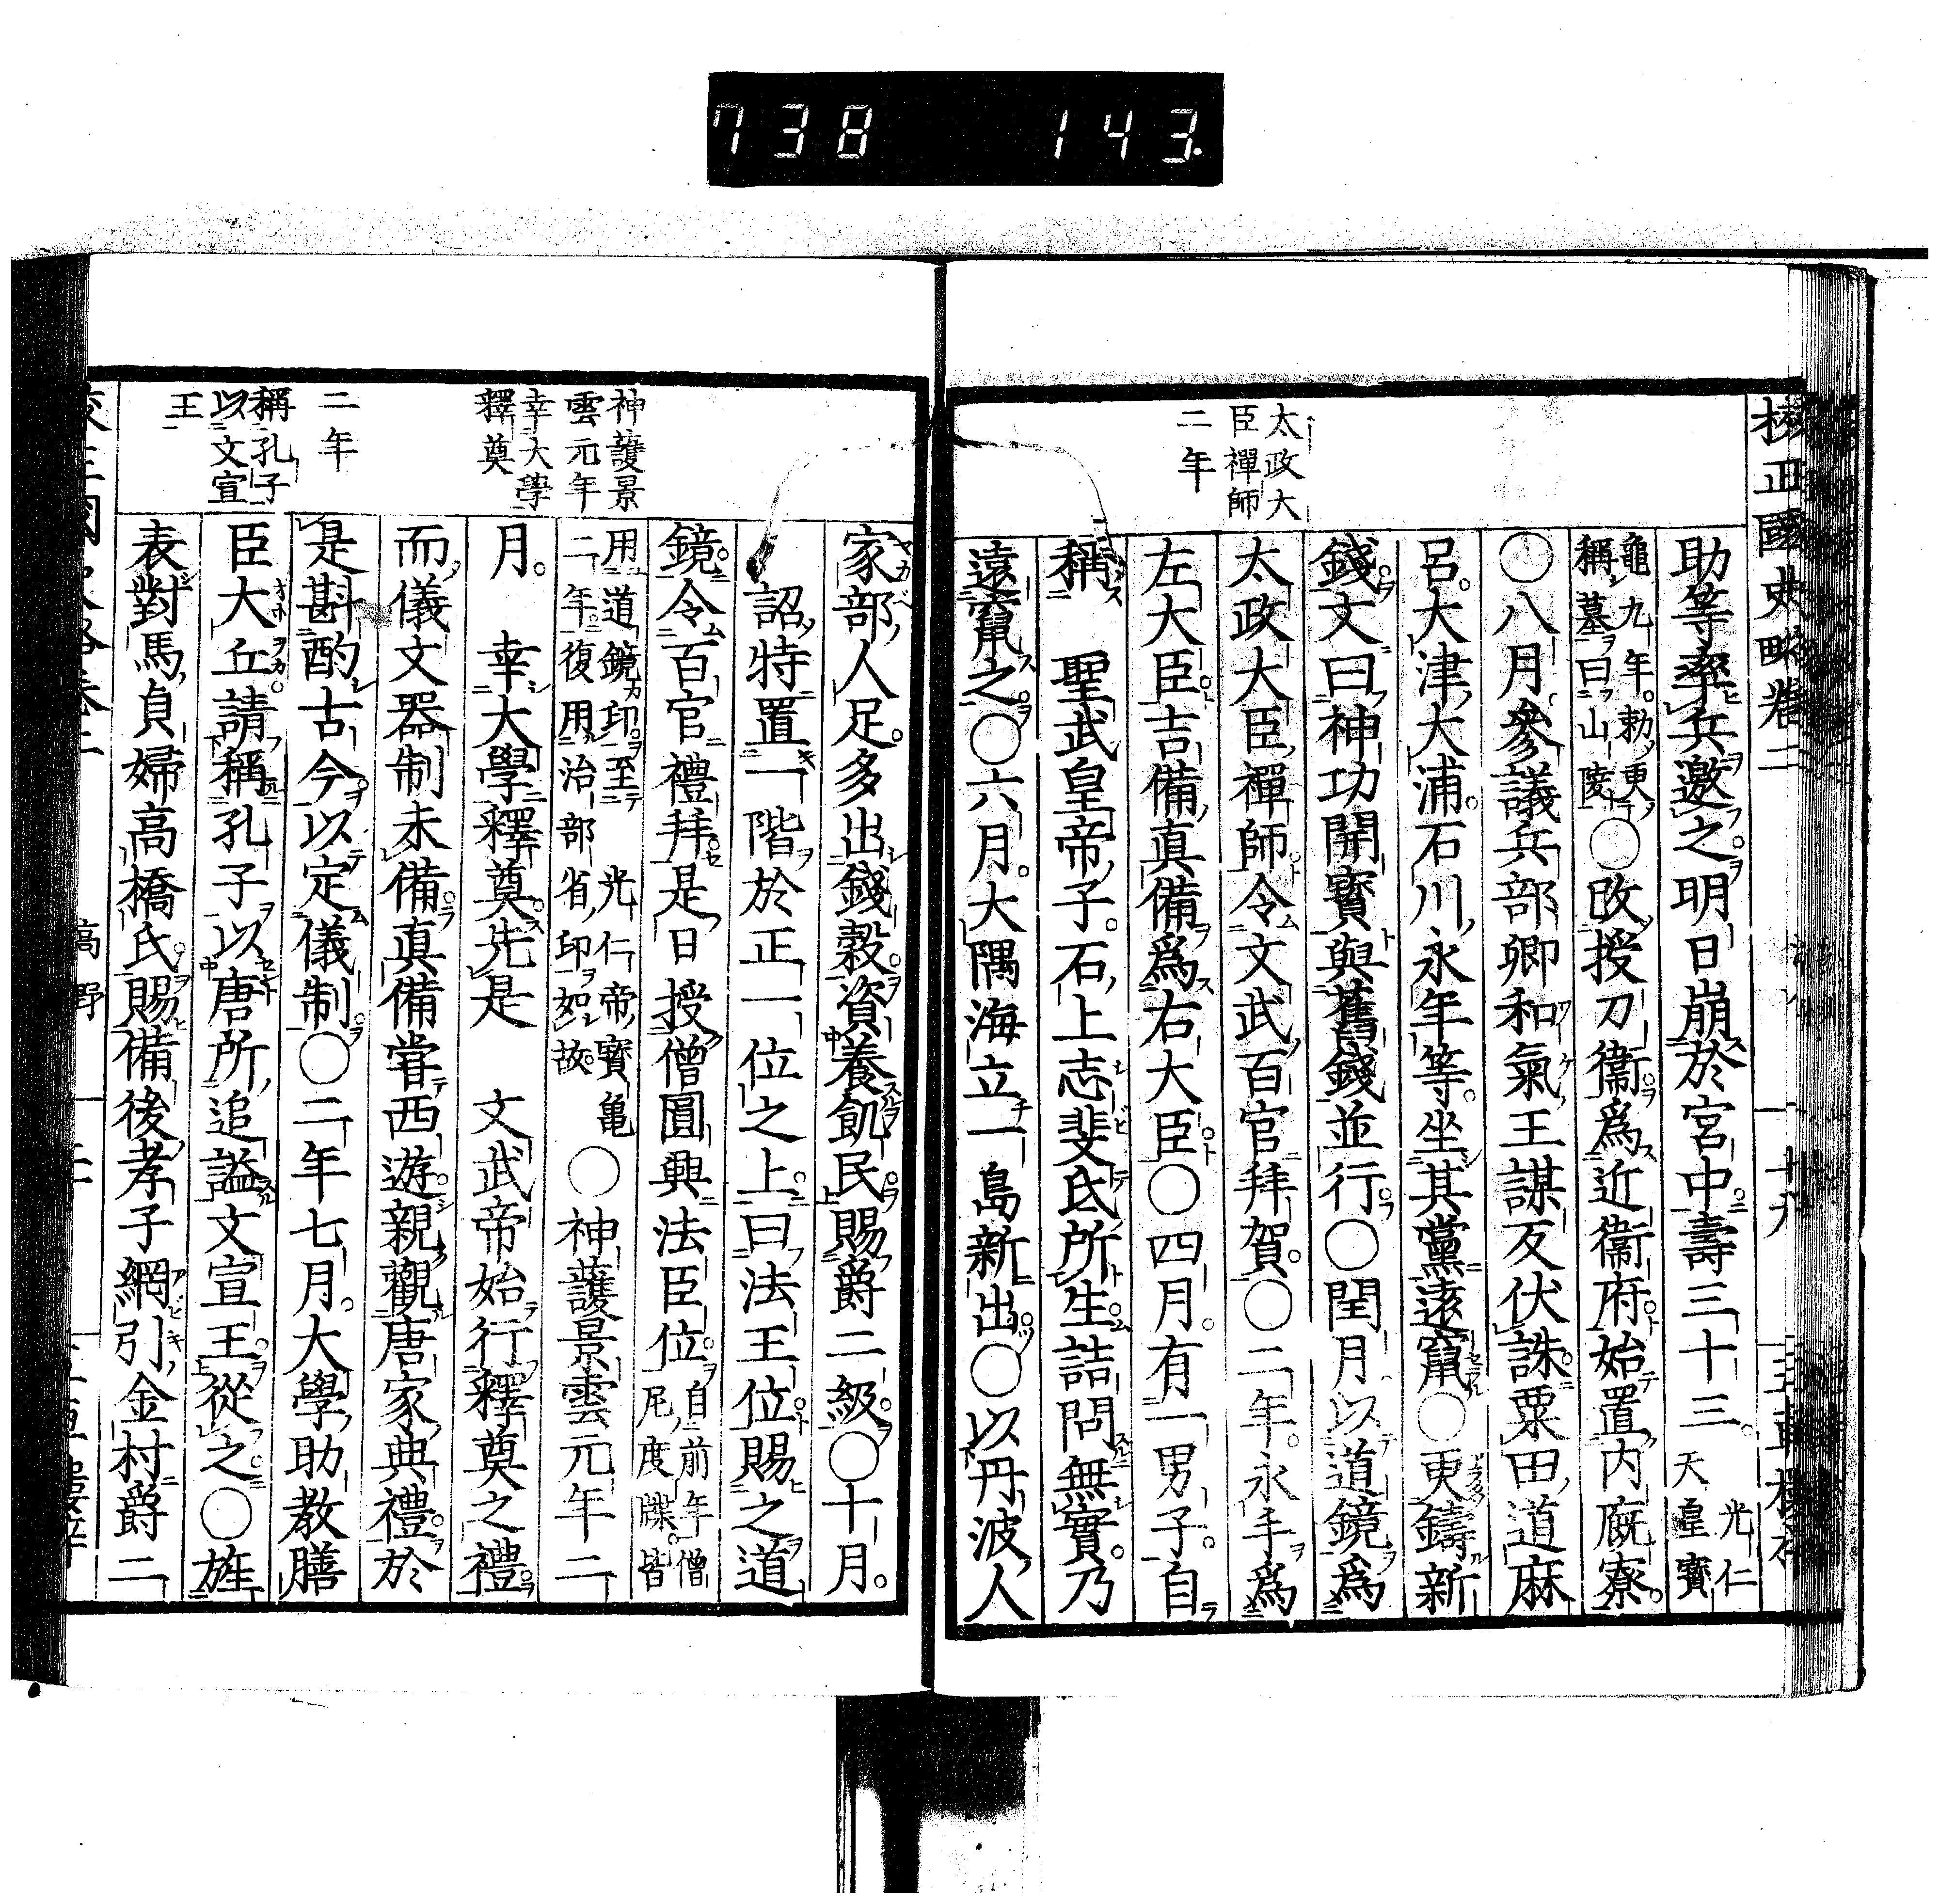 738 143.
校正國史略卷二
助等率兵邀之明日崩於宮中壽三十三。光仁天皇寶
龜九年。勅更稱墓曰山陵〇改授刀衞爲近衞府始置内廐寮。
〇八月參議兵部卿和氣王謀反伏誅粟田道麻
呂。大津大浦。石川永年等。坐其黨遠竄〇更鑄新
錢文曰神功開寶與舊錢並行〇閏月以道鏡爲
太政大臣禪師令文武百官拜賀。〇二年。永手爲
左大臣吉備眞備爲右大臣〇四月。有一男子。自
稱 聖武皇帝子。石上志斐氏所生詰問無實。乃
遠竄之〇六月。大隅海立一島新出〇以丹波人
太政大
臣禪師
二年
家部人足。多出錢穀。資養飢民賜爵二級〇十月。
詔特置一階於正一位之上曰法王位賜之道
鏡。令百官禮拜是日授僧圓興法臣位自前年僧尼度牒。皆
用道鏡印至光仁帝寶亀二年復用治部省印如故。〇神護景雲元年二
月。 幸大學釋奠先是 文武帝始行釋奠之禮
而儀文器制未備眞備嘗西遊親觀唐家典禮於
是斟酌古今以定儀制〇二年七月。大學助教膳
臣大丘請稱孔子以唐所追謚文宣王從之〇旌
表對馬貞婦高橋氏賜備後孝子網引金村爵二
神護景
雲元年
幸大學
釋奠
二年
稱孔子
以文宣
王
高野